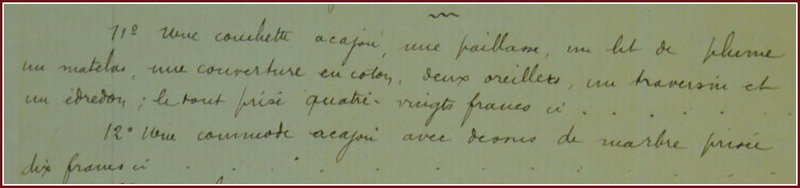 11º Une couchette acajou, une paillasse, un lit de plume
un matelas, une couverture en coton, deux oreillers, un traversin et
un édredon ; le tout prisé quatre-vingts francs ci . . . . . .
12º Une commode acajou avec dessus de marbre prisée
dix francs ci . . . . . . . .